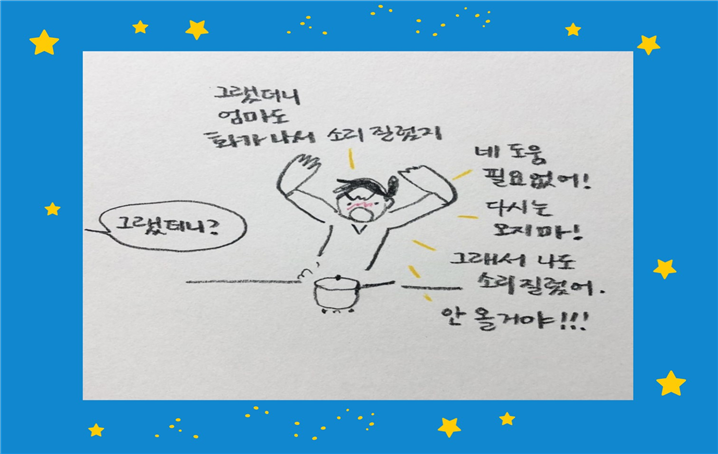 그랬더니
엄마도
화가 나서 소리 질렀지
그랬더니?
네 도움
필요없어!
다시는
오지마!
그래서 나도
소리 질렀어.
안 올거야!!!